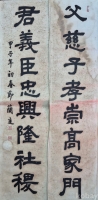 父慈子孝崇高家門
君義臣忠興隆社稷
甲子年初春